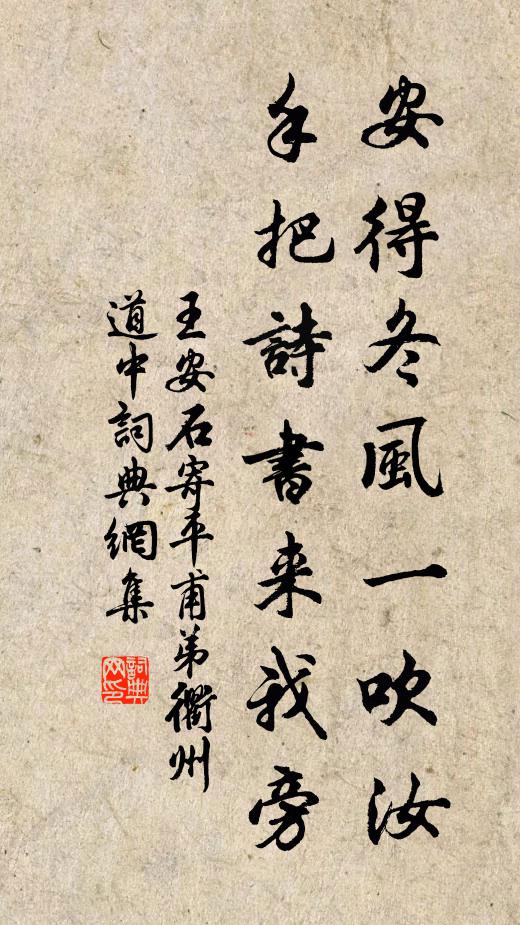 安得冬風一吹汝
手把詩書来我旁
王安石寄平甫弟衢州
道中詞典網集
詞典網印